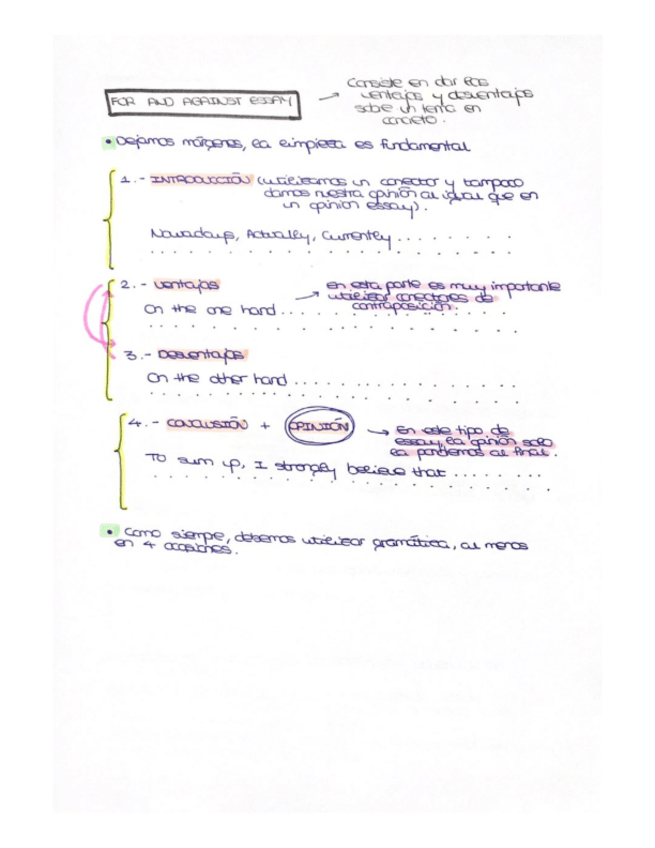 FOR AND AGAINST ESSAY
→ Consiste en dar las
ventajas y desventajas
sobe un tema en
concreto.
• Dejamos márgenes, la limpieza es fundamental
1.- INTRODUCCIÓN (utilizamos un conector y tampoco
damos nuestra opinión al igual que en
un opinión essay).
Nowadays, Actually, Currently........
2.- Ventajas
→ en esta parte es muy importante
utilizar conectores de
contraposición.
On the one hand....
3.- Desventajas
On the other hand....
4.- CONCLUSIÓN + OPINIÓN
→ En este tipo de
essay, la opinión solo
la pondremos al final.
To sum up, I strongly believe that........
• Como siempre, debemos utilizar gramática, al menos
en 4 ocasiones.